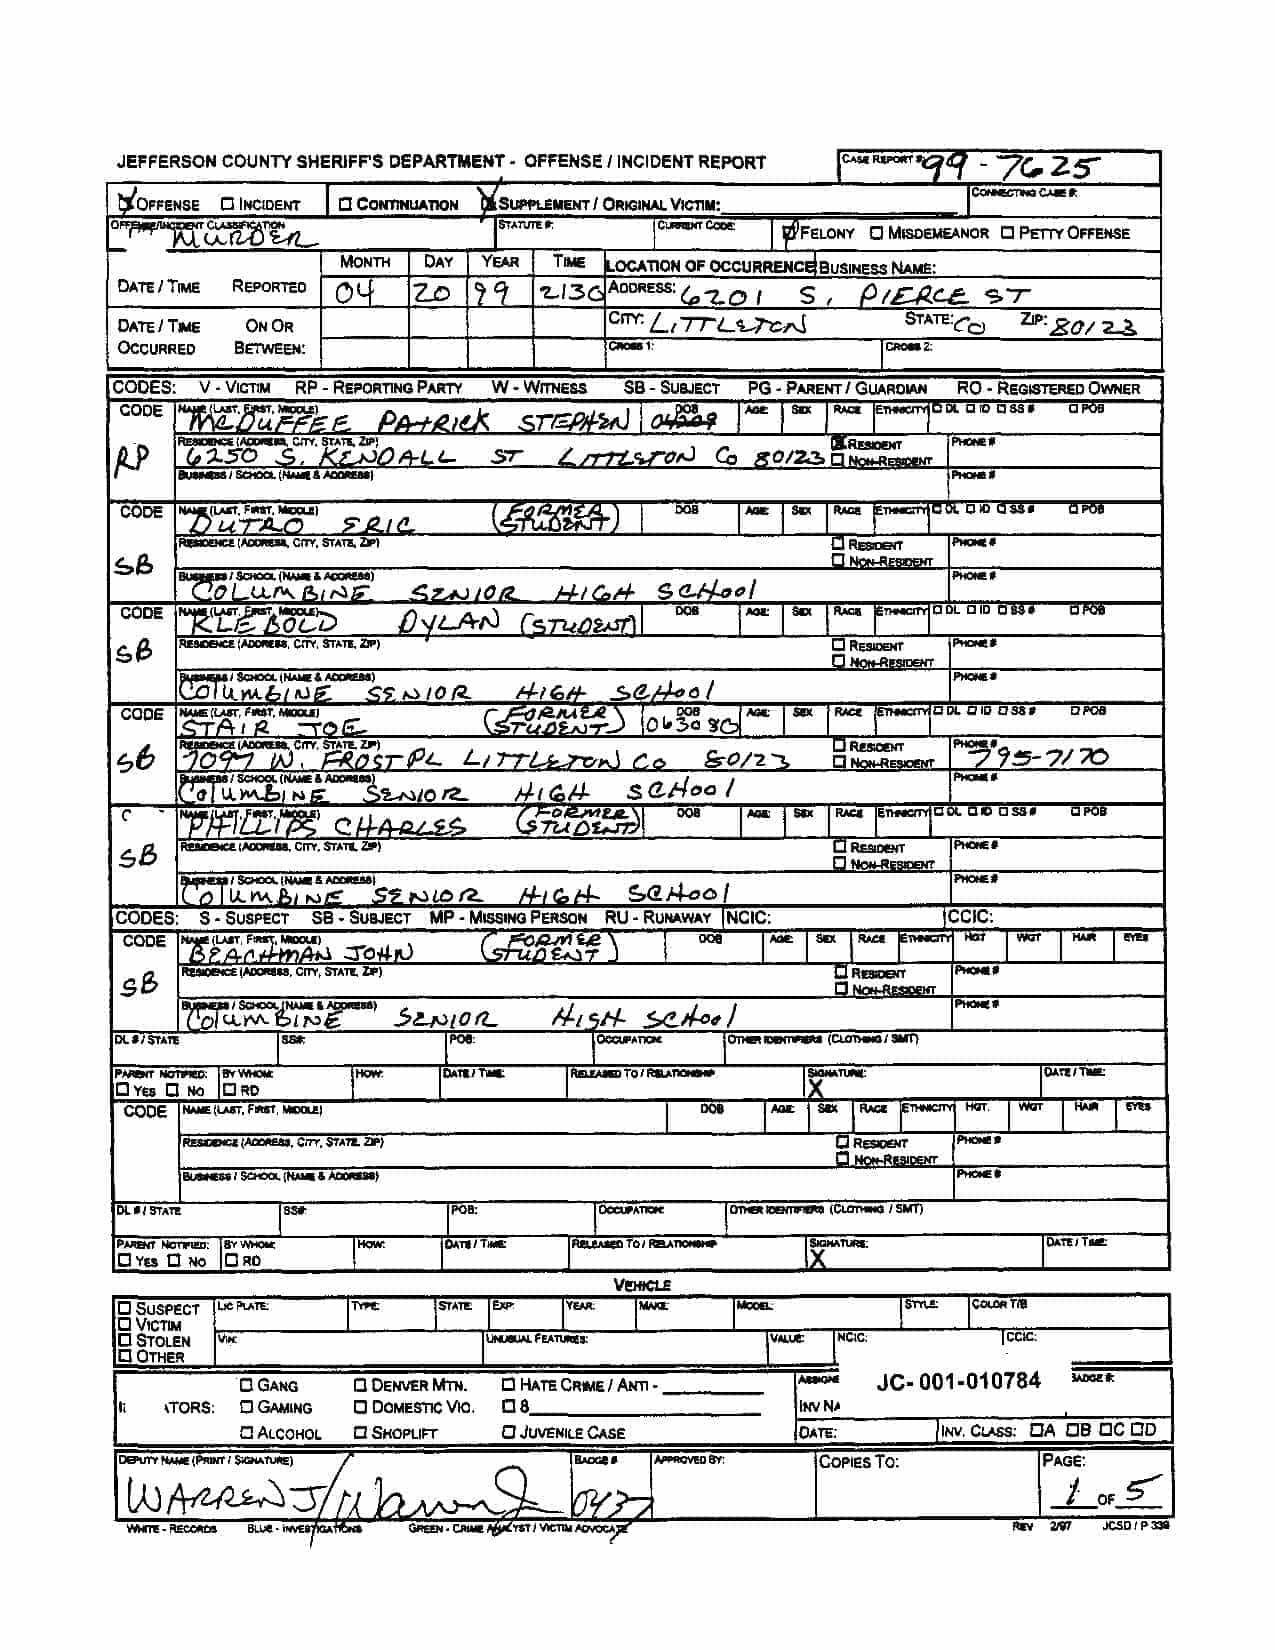 JEFFERSON COUNTY SHERIFF'S DEPARTMENT - OFFENSE / INCIDENT REPORT
CASE REPORT #: 99 - 7625
OFFENSE INCIDENT CONTINUATION SUPPLEMENT / ORIGINAL VICTIM:
CONNECTING CASE #:
OFFENSE/INCIDENT CLASSIFICATION STATUTE #: CURRENT CODE: FELONY MISDEMEANOR PETTY OFFENSE
MURDER
MONTH DAY YEAR TIME LOCATION OF OCCURRENCE BUSINESS NAME:
DATE / TIME REPORTED 04 20 99 2130 ADDRESS: 6201 S. PIERCE ST
DATE / TIME ON OR CITY: LITTLETON STATE: CO ZIP: 80123
OCCURRED BETWEEN: CROSS 1: CROSS 2:
CODES: V - VICTIM RP - REPORTING PARTY W - WITNESS SB - SUBJECT PG - PARENT / GUARDIAN RO - REGISTERED OWNER
CODE NAME (LAST, FIRST, MIDDLE) DOB AGE: SEX RACE ETHNICITY DL ID SS # POB
MCDUFFEE PATRICK STEPHEN
RP RESIDENCE (ADDRESS, CITY, STATE, ZIP) RESIDENT PHONE #
6250 S. KENDALL ST LITTLETON CO 80123 NON-RESIDENT
BUSINESS / SCHOOL (NAME & ADDRESS) PHONE #
CODE NAME (LAST, FIRST, MIDDLE) DOB AGE: SEX RACE ETHNICITY DL ID SS # POB
DUTRO ERIC (FORMER STUDENT)
SB RESIDENCE (ADDRESS, CITY, STATE, ZIP) RESIDENT PHONE #
NON-RESIDENT
BUSINESS / SCHOOL (NAME & ADDRESS) PHONE #
COLUMBINE SENIOR HIGH SCHOOL
CODE NAME (LAST, FIRST, MIDDLE) DOB AGE: SEX RACE ETHNICITY DL ID SS # POB
KLEBOLD DYLAN (STUDENT)
SB RESIDENCE (ADDRESS, CITY, STATE, ZIP) RESIDENT PHONE #
NON-RESIDENT
BUSINESS / SCHOOL (NAME & ADDRESS) PHONE #
COLUMBINE SENIOR HIGH SCHOOL
CODE NAME (LAST, FIRST, MIDDLE) DOB AGE: SEX RACE ETHNICITY DL ID SS # POB
STAIR JOE (FORMER STUDENT) 063080
SB RESIDENCE (ADDRESS, CITY, STATE, ZIP) RESIDENT PHONE #
7097 W. FROST PL LITTLETON CO 80123 NON-RESIDENT 795-7170
BUSINESS / SCHOOL (NAME & ADDRESS) PHONE #
COLUMBINE SENIOR HIGH SCHOOL
C NAME (LAST, FIRST, MIDDLE) DOB AGE: SEX RACE ETHNICITY DL ID SS # POB
PHILLIPS CHARLES (FORMER STUDENT)
SB RESIDENCE (ADDRESS, CITY, STATE, ZIP) RESIDENT PHONE #
NON-RESIDENT
BUSINESS / SCHOOL (NAME & ADDRESS) PHONE #
COLUMBINE SENIOR HIGH SCHOOL
CODES: S - SUSPECT SB - SUBJECT MP - MISSING PERSON RU - RUNAWAY NCIC: CCIC:
CODE NAME (LAST, FIRST, MIDDLE) DOB AGE: SEX RACE ETHNICITY HGT WGT HAIR EYES
BEACHMAN JOHN (FORMER STUDENT)
SB RESIDENCE (ADDRESS, CITY, STATE, ZIP) RESIDENT PHONE #
NON-RESIDENT
BUSINESS / SCHOOL (NAME & ADDRESS) PHONE #
COLUMBINE SENIOR HIGH SCHOOL
DL # / STATE SS#: POB: OCCUPATION: OTHER IDENTIFIERS (CLOTHING / SMT)
PARENT NOTIFIED: BY WHOM: HOW: DATE / TIME: RELEASED TO / RELATIONSHIP SIGNATURE: DATE / TIME:
YES NO RD X
CODE NAME (LAST, FIRST, MIDDLE) DOB AGE: SEX RACE ETHNICITY HGT. WGT HAIR EYES
RESIDENCE (ADDRESS, CITY, STATE, ZIP) RESIDENT PHONE #
NON-RESIDENT
BUSINESS / SCHOOL (NAME & ADDRESS) PHONE #
DL # / STATE SS#: POB: OCCUPATION: OTHER IDENTIFIERS (CLOTHING / SMT)
PARENT NOTIFIED: BY WHOM: HOW: DATE / TIME: RELEASED TO / RELATIONSHIP SIGNATURE: DATE / TIME:
YES NO RD X
VEHICLE
SUSPECT LIC PLATE: TYPE: STATE: EXP: YEAR: MAKE: MODEL: STYLE: COLOR T/B
VICTIM
STOLEN VIN: UNUSUAL FEATURES: VALUE: NCIC: CCIC:
OTHER
GANG DENVER MTN. HATE CRIME / ANTI - ASSIGNE JC- 001-010784 BADGE #:
ATORS: GAMING DOMESTIC VIO. 8 INV NA
ALCOHOL SHOPLIFT JUVENILE CASE DATE: INV. CLASS: A B C D
DEPUTY NAME (PRINT / SIGNATURE) BADGE # APPROVED BY: COPIES TO: PAGE:
WARREN J 0437 1 OF 5
WHITE - RECORDS BLUE - INVESTIGATIONS GREEN - CRIME ANALYST / VICTIM ADVOCATE REV 2/97 JCSD / P 339